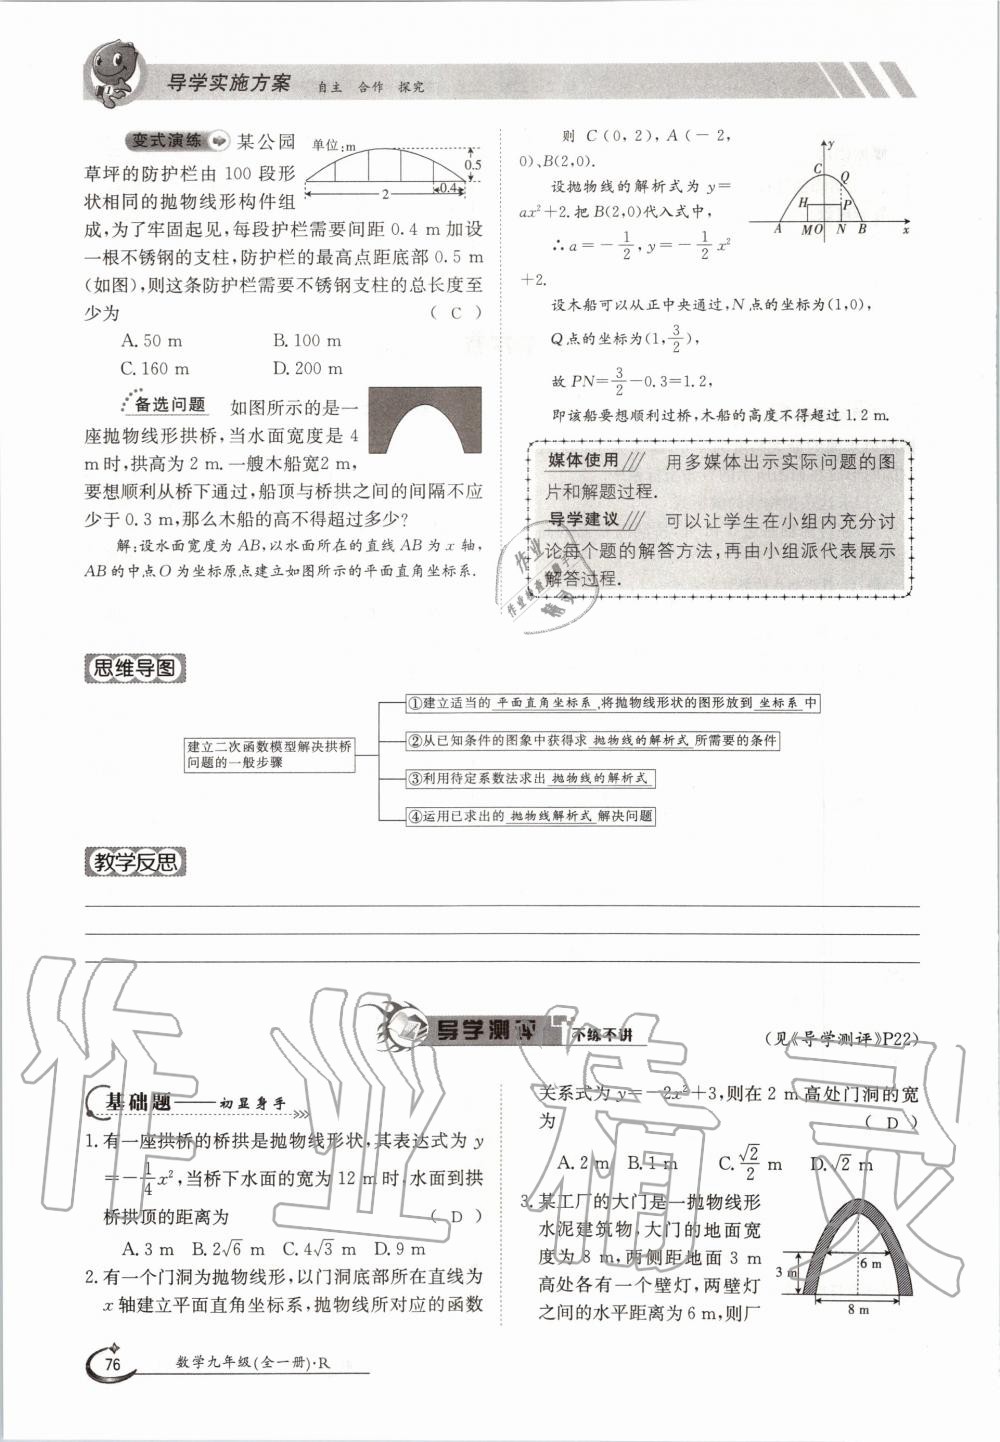 导学实施方案 自主 合作 探究
变式演练 某公园
草坪的防护栏由 100 段形
状相同的抛物线形构件组
成,为了牢固起见,每段护栏需要间距 0.4 m 加设
一根不锈钢的支柱,防护栏的最高点距底部 0.5 m
(如图),则这条防护栏需要不锈钢支柱的总长度至
少为 ( C )
单位:m
0.5
0.4
2
A. 50 m B. 100 m
C. 160 m D. 200 m
备选问题 如图所示的是一
座抛物线形拱桥,当水面宽度是 4
m时,拱高为 2 m.一艘木船宽2 m,
要想顺利从桥下通过,船顶与桥拱之间的间隔不应
少于 0.3 m,那么木船的高不得超过多少?
解:设水面宽度为 AB,以水面所在的直线 AB 为 x 轴,
AB 的中点O 为坐标原点建立如图所示的平面直角坐标系.
则 C(0,2),A(-2,
0)、B(2,0).
设抛物线的解析式为 y=
ax²+2.把 B(2,0)代入式中,
∴a=-1/2,y=-1/2x²
+2.
y
C
Q
H
P
A MO N B x
设木船可以从正中央通过,N 点的坐标为(1,0),
Q点的坐标为(1,3/2),
故 PN=3/2-0.3=1.2,
即该船要想顺利过桥,木船的高度不得超过 1.2 m.
媒体使用/// 用多媒体出示实际问题的图
片和解题过程.
导学建议/// 可以让学生在小组内充分讨
论每个题的解答方法,再由小组派代表展示
解答过程.
思维导图
建立二次函数模型解决拱桥
问题的一般步骤
①建立适当的 平面直角坐标系 ,将抛物线形状的图形放到 坐标系 中
②从已知条件的图象中获得求 抛物线的解析式 所需要的条件
③利用待定系数法求出 抛物线的解析式
④运用已求出的 抛物线解析式 解决问题
教学反思
导学测评 不练不讲 (见《导学测评》P22)
基础题——初显身手
1.有一座拱桥的桥拱是抛物线形状,其表达式为 y
=-1/4x²,当桥下水面的宽为 12 m 时,水面到拱
桥拱顶的距离为 ( D )
A. 3 m B. 2√6 m C. 4√3 m D. 9 m
2.有一个门洞为抛物线形,以门洞底部所在直线为
x 轴建立平面直角坐标系,抛物线所对应的函数
关系式为 y=-2x²+3,则在 2 m高处门洞的宽
为 ( D )
A. 2 m B. 1 m C. √2/2 m D. √2 m
3.某工厂的大门是一抛物线形
水泥建筑物,大门的地面宽
度为 8 m,两侧距地面 3 m
高处各有一个壁灯,两壁灯
之间的水平距离为 6 m,则厂
3 m
6 m
8 m
76 数学九年级(全一册)·R
作业精灵